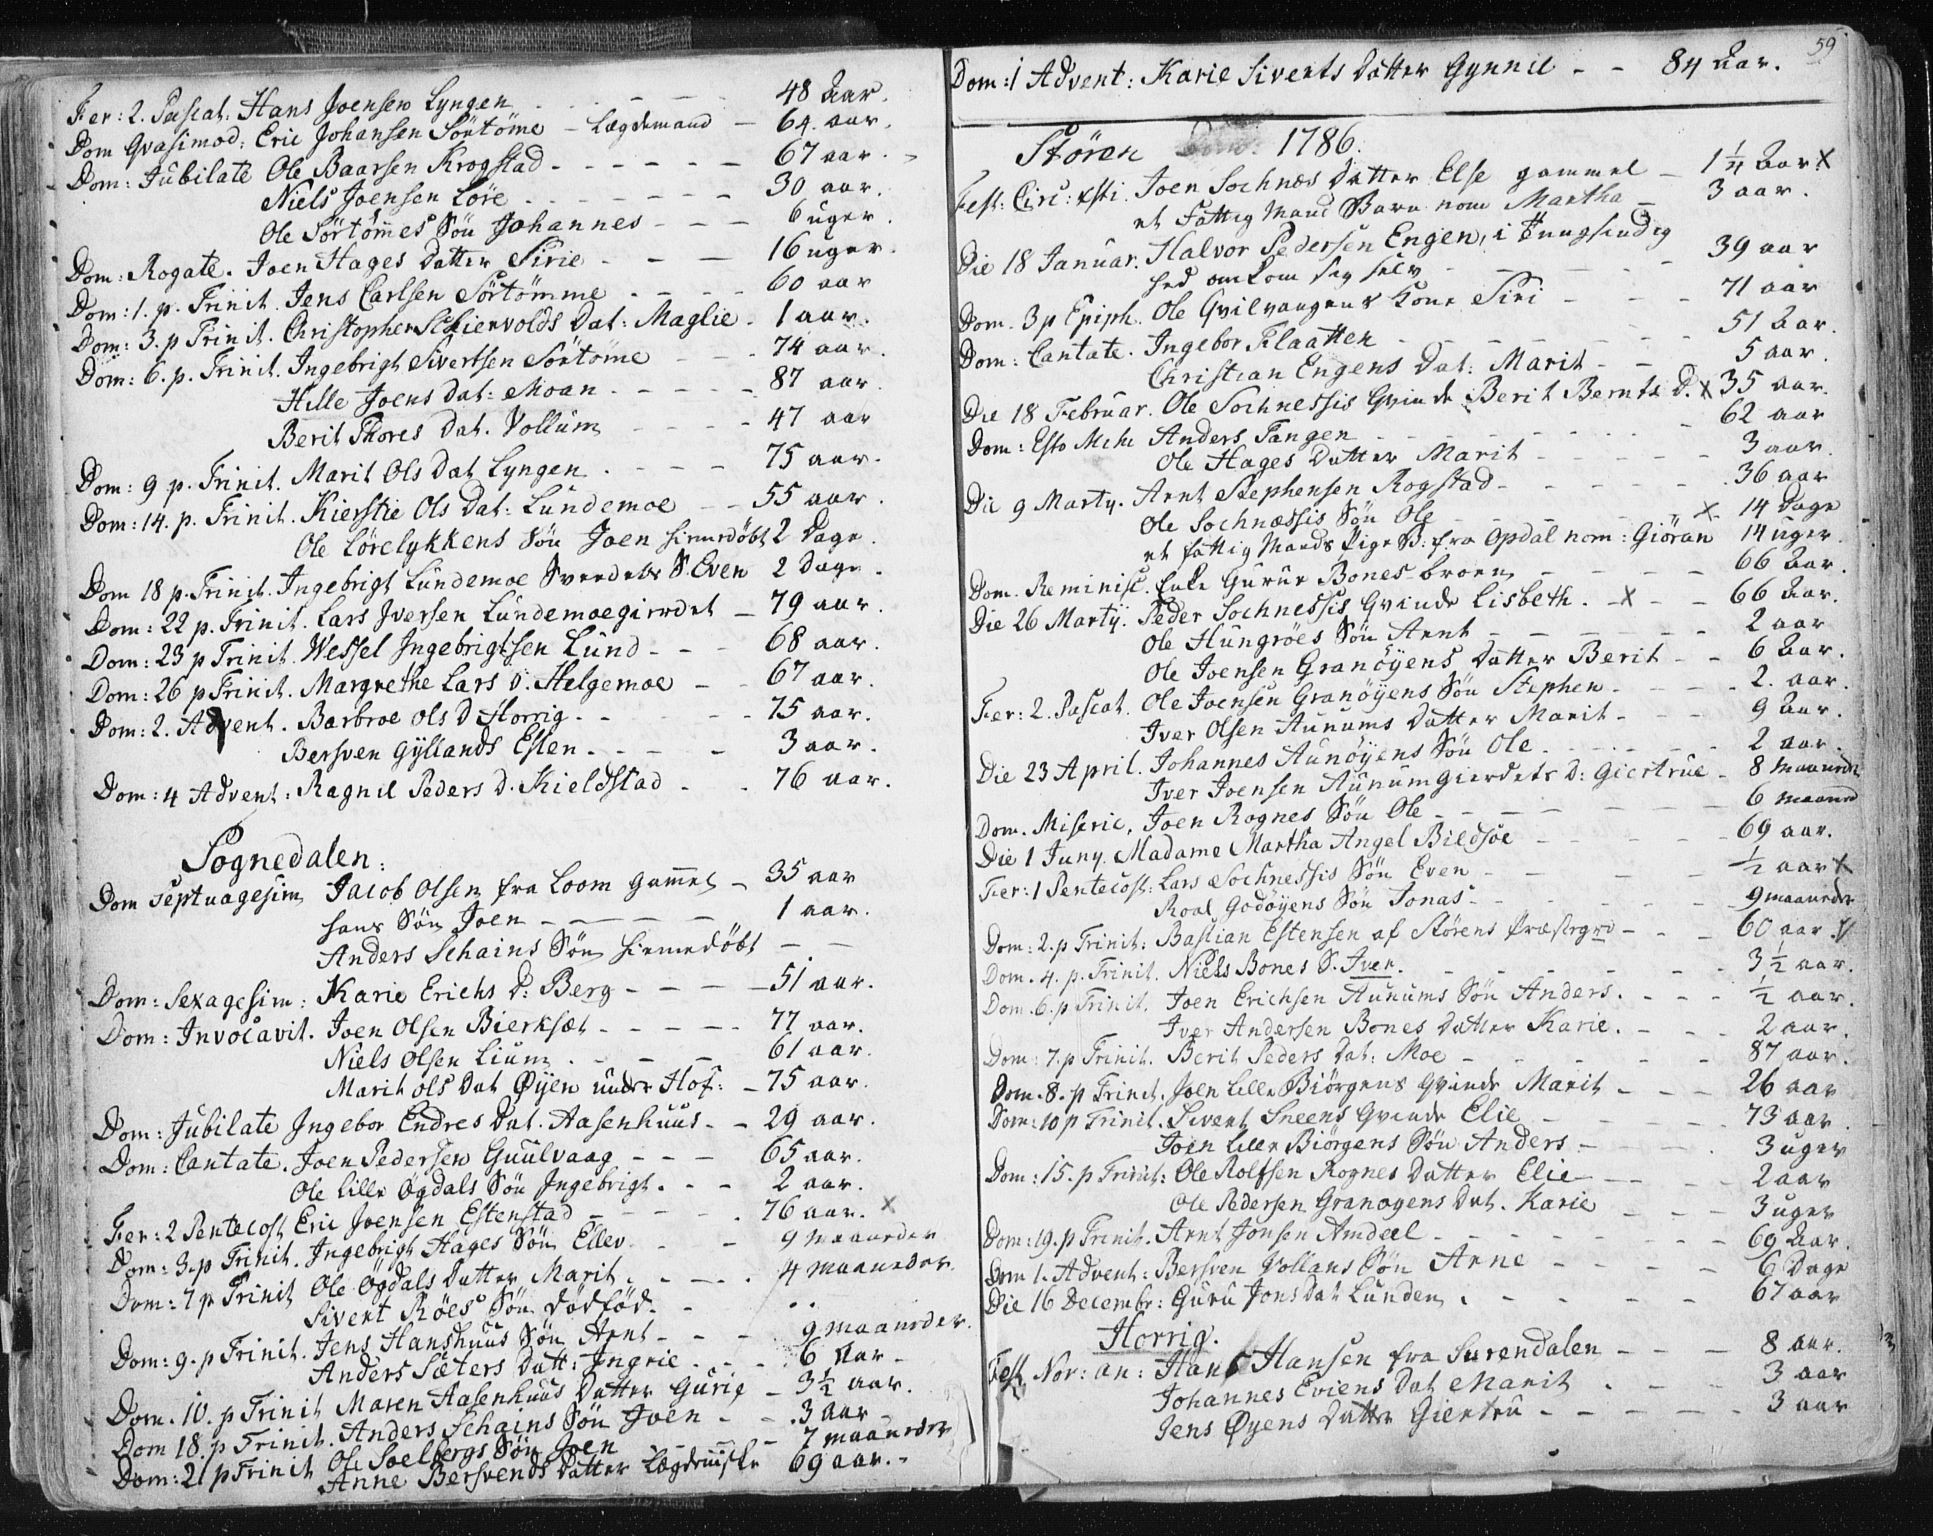 Fer: 2. Pascat. Hans Joensen Lyngen - - - 48 Aar.
Dom Qvasimod: Eric Johansen Sørtøme - Lægdemand - 64 aar.
Dom: Jubilate Ole Baarsen Krogstad - - - 67 aar.
Niels Joensen Løre - - - 30 aar.
Ole Sørtømes Søn Johannes - - - 6 uger.
Dom: Rogate. Joen Hages Datter Sirie - - - 16 uger.
Dom: 1. p. Trinit. Jens Carlsen Sørtømme - - - 60 aar
Dom: 3. p Trinit. Christopher Schiervolds Dat: Maglie - 1 aar.
Dom: 6. p. Trinit. Ingebrigt Sivertsen Sörtöme - - - 74 aar.
Hille Joens Dat: Moan - - - 87 aar.
Berit Thores Dat. Vollum - - - 47 aar
Dom: 9 p. Trinit. Marit Ols Dat Lyngen - - - 75 aar.
Dom: 14. p. Trinit. Kierstie Ols Dat: Lundemoe - - 55 aar.
Ole Lörelykkens Søn Joen hiemedøbt 2 Dage.
Dom 18 p. Trinit. Ingebrigt Lundemoe Svendets S. Even 2 Dage.
Dom: 22 p. Trinit. Lars Iversen Lundemoegierdet - 79 aar.
Dom: 23 p Trinit. Wessel Ingebrigtsen Lund - - - 68 aar.
Dom: 26 p Trinit. Margrethe Lars D. Helgemoe - - 67 aar.
Dom: 2. Advent. Barbroe Ols D Horrig - - - 75 aar.
Bersven Gyllands Esten - - - 3 aar.
Dom: 4 Advent: Ragnil Peders D. Kieldstad - - 76 aar.
Sognedalen:
Dom Septuagesim Jacob Olsen fra Loom gammel - 35 aar
hans Søn Joen - - - 1 aar.
Anders Schains Søn hiemedøbt - -
Dom: Sexagesim: Karie Erichs D: Berg - - - 51 aar.
Dom: Invocavit. Joen Olsen Bierksæt - - - 77 aar.
Niels Olsen Lium - - - 61 aar.
Marit Ols Dat Øyen under Hof: - 75 aar.
Dom: Jubilate Ingebor Endres Dat. Aasenhuus - - 29 aar.
Dom: Cantate. Joen Pedersen Guulvaag - - - 65 aar.
Ole Lille Ogdals Søn Ingebrigt - - - 2 aar.
Fer: 2 Pentecost Eric Joensen Estenstad - - - 76 aar. x
Dom: 3. p Trinit. Ingebrigt Hages Søn Ellev - - 9 maaneder
Dom: 7 p Trinit Ole Ogdals Datter Marit - - - 4 maaneder.
Sivert Röes Søn dødfød. -
Dom: 9. p Trinit. Jens Hanshuus Søn Arnt - - - 9 maaneder.
Anders Sæters Datt: Ingrie - - - 6 Aar -
Dom. 10. p Trinit Maren Aasenhuus Datter Gurie - 3 1/2 aar.
Dom 18. p Trinit. Anders Schains Søn Joen - - 3 aar
Ole Soelbergs Søn Joen - - 7 maaneder
Dom: 21 p Trinit Anne Bersvends Datter Lægdeniske 69 aar. -
59
Dom: 1 Advent: Karie Siverts Datter Gynnil - - 84 Aar.
Støren 1786.
Fest: Circ: xsti. Joen Sochnæs Datter Else gammel - 1 1/4 Aar x
et Fattig Mands Barn nom Martha - 3 aar.
Die 18 Januar. Halvor Pedersen Engen, i Tungsindig
hed omkom sig selv - - - 39 aar
Dom. 3 p Epiph. Ole Qvilvangens Kone Siri - - - 71 aar
Dom: Cantate. Ingebor Flaatten - - - 51 Aar.
Christian Engens Dat: Marit - - - 5 aar.
Die 18 Februar. Ole Sochnessis Qvinde Berit Bernts D. x 35 aar.
Dom: Esto Mihi Anders Tangen - - - 62 aar
Ole Hages Datter Marit - - - 3 aar.
Die 9 Martij. Arnt Stephensen Rogstad - - - 36 aar
Ole Sochnæssis Søn Ole - - - x 14 Dage
et fattig Mands Pige B: fra Opdal nom: Giöran 14 uger.
Dom. Reminisc. Enke Gurue Bones-broen - - - 66 Aar.
Die 26 Martij. Peder Sochnessis Qvinde Lisbeth. - x - - 66 Aar.
Ole Hungröes Søn Arnt - - - 2 aar
Ole Joensen Granöyens Datter Berit - - 6 Aar.
Fer: 2. Pascat. Ole Joensen Granöyens Søn Stephen - - - 2. aar.
Iver Olsen Aunums Datter Marit - - - 9 Aar.
Die 23 April. Johannes Aunöyens Søn Ole - - - 2 aar.
Iver Joensen Aunumgierdets D: Giertrue - 8 Maaneder
Dom. Miseric. Joen Rognes Søn Ole - - - 6 maaned
Die 1 Juny. Madame Martha Angel Bildsöe - - - 69 aar.
Fer: 1 Pentecost: Lars Sochnessis Søn Even - - - 1/2 aar x
Roal Godøyens Søn Jonas - - - 9 maaneder
Dom: 2. p Trinit: Bastian Estensen af Størens Præstegrd - - - 60 aar.
Dom. 4. p. Trinit. Niels Bones S. Iver. - - - 3 1/2 aar.
Dom. 6. p Trinit. Joen Erichsen Aunums Søn Anders. - - - 1/2 aar.
Iver Andersen Bones Datter Karie. - - - 2 aar.
Dom: 7. p Trinit. Berit Peders Dat: Moe - - - 87 aar.
Dom. 8. p Trinit. Joen Lille Biörgens Qvinde Marit - - - 26 aar
Dom: 10 p Trinit. Sivert Sneens Qvinde Elie - - - 73 aar
Joen Lille Biörgens Søn Anders - - - 3 uger
Dom: 15. p Trinit: Ole Rolfsen Rognes Datter Elie - - - 2 aar
Ole Pedersen Granøyens Dat. Karie - - - 3 uger
Dom: 19. p Trinit. Arnt Jonsen Amdeel - - - 69 Aar.
Dom 1. Advent: Bersven Vollans Søn Arne - - - 6 Dage
Die 16 Decembr: Guru Jons Dat Lunden - - - 67 aar
Horrig.
Fest Nov: an: Hans Hansen fra Surendalen - - - 8 aar.
Johannes Eviens Dat Marit - - - 3 aar
Jens Øyens Datter Giertru - - - 3 aar